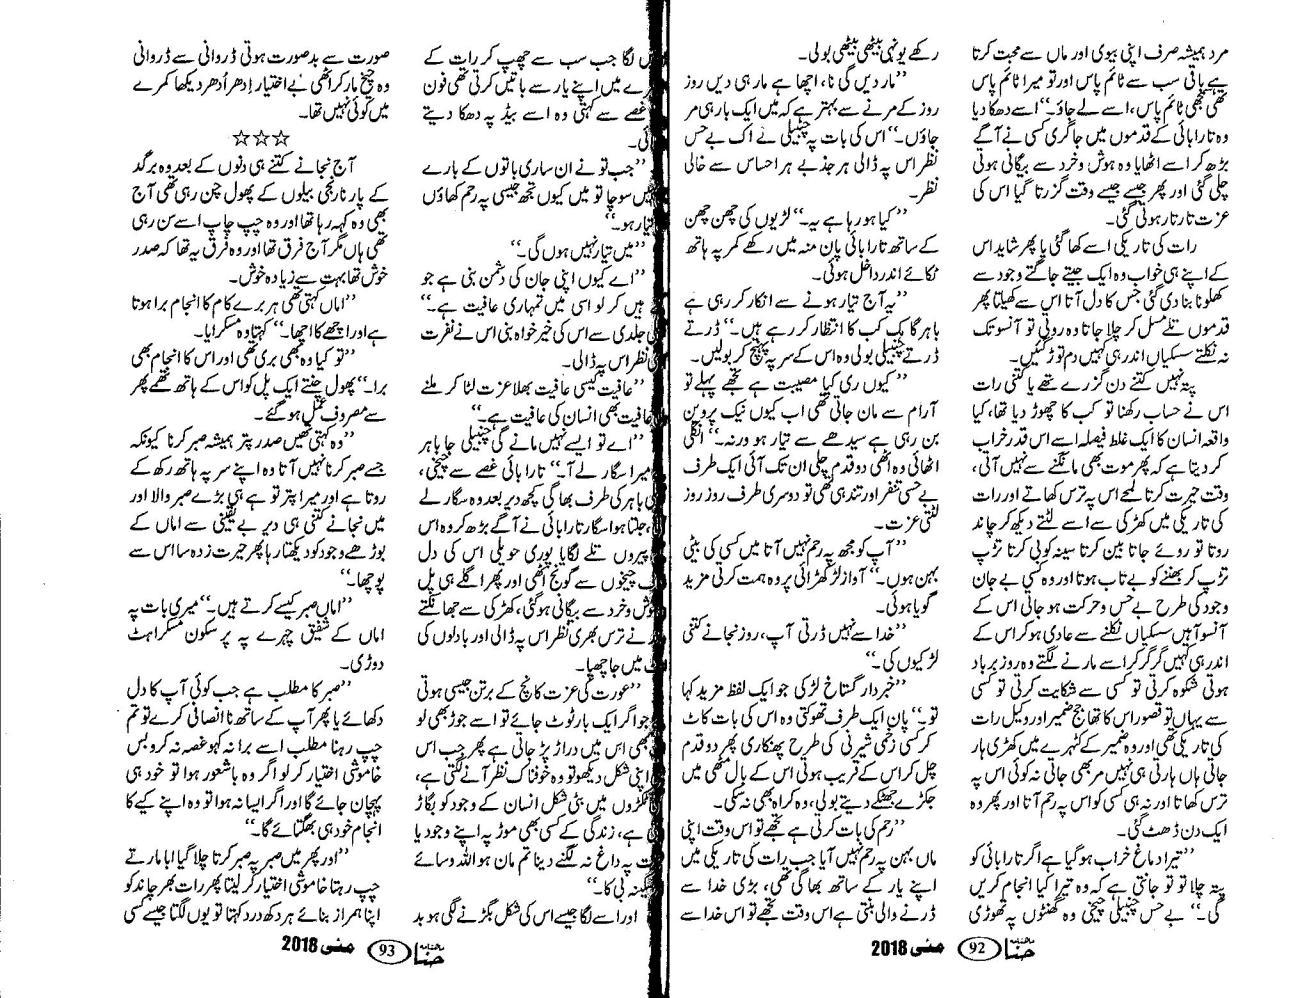 مرد ہمیشہ صرف اپنی بیوی اور ماں سے محبت کرتا
ہے باقی سب سے ٹائم پاس اور تو میرا ٹائم پاس
تھی بھی ٹائم پاس، اسے لے جاؤ۔“ اسے دھکا دیا
وہ تارا بائی کے قدموں میں جا گری کسی نے آگے
بڑھ کر اسے اٹھایا وہ ہوش و خرد سے بیگانی ہوتی
چلی گئی اور پھر جیسے جیسے وقت گزرتا گیا اس کی
عزت تار تار ہوتی گئی۔
رات کی تاریکی اسے کھا گئی یا پھر شاید اس
کے اپنے ہی خواب وہ ایک جیتے جاگتے وجود سے
کھلونا بنا دی گئی جس کا دل آتا اس سے کھیلتا پھر
قدموں تلے مسل کر چلا جاتا وہ روتی تو آنسو تک
نہ نکلتے سسکیاں اندر ہی کہیں دم توڑ گئیں۔
پتہ نہیں کتنے دن گزرے تھے یا کتنی رات
اس نے حساب رکھنا تو کب کا چھوڑ دیا تھا، کیا
واقعہ انسان کا ایک غلط فیصلہ اسے اس قدر خراب
کر دیتا ہے کہ پھر موت بھی مانگنے سے نہیں آتی،
وقت حیرت کرتا لمحے اس پہ ترس کھاتے اور رات
کی تاریکی میں کھڑکی سے اسے لٹتے دیکھ کر چاند
روتا تو روئے جاتا بین کرتا سینہ کوبی کرتا تڑپ
تڑپ کر پھٹنے کو بے تاب ہوتا اور وہ کسی بے جان
وجود کی طرح بے حس و حرکت ہو جاتی اس کے
آنسو آہیں سسکیاں نکلنے سے عادی ہو کر اس کے
اندر ہی کہیں گر گر کر اسے مارنے لگتے وہ روز برباد
ہوتی شکوہ کرتی تو کسی سے شکایت کرتی تو کسی
سے یہاں تو قصور اس کا تھا جج ضمیر اور وکیل رات
کی تاریکی تھی اور وہ ضمیر کے کٹہرے میں کھڑی ہار
جاتی ہاں ہارتی ہی نہیں مر بھی جاتی نہ کوئی اس پہ
ترس کھاتا اور نہ ہی کسی کو اس پہ رحم آتا اور پھر وہ
ایک دن ڈھٹ گئی۔
”تیرا دماغ خراب ہو گیا ہے اگر تارا بائی کو
پتہ چلا تو تو جانتی ہے کہ وہ تیرا کیا انجام کریں
گی۔“ بے حس چنبیلی چیخی وہ گھٹنوں پہ تھوڑی
رکھے یونہی بیٹھی بیٹھی بولی۔
”مار دیں گی نا، اچھا ہے مار ہی دیں روز
روز کے مرنے سے بہتر ہے کہ میں ایک بار ہی مر
جاؤں۔“ اس کی بات پہ چنبیلی نے اک بے حس
نظر اس پہ ڈالی ہر جذبے ہر احساس سے خالی
نظر۔
”کیا ہو رہا ہے یہ۔“ لڑیوں کی چھن چھن
کے ساتھ تارا بائی پان منہ میں رکھے کمر پہ ہاتھ
ٹکائے اندر داخل ہوئی۔
”یہ آج تیار ہونے سے انکار کر رہی ہے
باہر گاہک کب کا انتظار کر رہے ہیں۔“ ڈرتے
ڈرتے چنبیلی بولی وہ اس کے سر پہ پہنچ کر بولیں۔
”کیوں ری کیا مصیبت ہے تجھے پہلے تو
آرام سے مان جاتی تھی اب کیوں نیک پروین
بن رہی ہے سیدھے سے تیار ہو ورنہ۔“ انگلی
اٹھائی وہ اٹھی دو قدم چلی ان تک آئی ایک طرف
بے حسی تنفر اور تندہی تھی تو دوسری طرف روز روز
لٹتی عزت۔
”آپ کو مجھ پہ رحم نہیں آتا میں کسی کی بیٹی
بہن ہوں۔“ آواز لڑکھڑائی پر وہ ہمت کرتی مزید
گویا ہوئی۔
”خدا سے نہیں ڈرتی آپ، روز نجانے کتنی
لڑکیوں کی۔“
”خبردار گستاخ لڑکی جو ایک لفظ مزید کہا
تو۔“ پان ایک طرف تھوکتی وہ اس کی بات کاٹ
کر کسی زخمی شیرنی کی طرح پھنکاری پھر دو قدم
چل کر اس کے قریب ہوتی اس کے بال مٹھی میں
جکڑے جھٹکے دیتے بولی، وہ کراہ بھی نہ سکی۔
”رحم کی بات کرتی ہے تجھے تو اس وقت اپنی
ماں بہن پہ رحم نہیں آیا جب رات کی تاریکی میں
اپنے یار کے ساتھ بھاگی تھی، بڑی خدا سے
ڈرنے والی بنتی ہے اس وقت تجھے تو اس خدا سے
ماہنامہ حنا 92 مئی 2018
لگا جب سب سے چھپ کر رات کے
میں اپنے یار سے باتیں کرتی تھی فون
غصے سے کہتی وہ اسے بیڈ پہ دھکا دیتے
”جب تو نے ان ساری باتوں کے بارے
نہیں سوچا تو میں کیوں تجھ جیسی پہ رحم کھاؤں
تیار ہو۔“
”میں تیار نہیں ہوں گی۔“
”اے کیوں اپنی جان کی دشمن بنی ہے جو
ہیں کر لو اسی میں تمہاری عافیت ہے۔“
جلدی سے اس کی خیر خواہ بنی اس نے نفرت
نظر اس پہ ڈالی۔
”عافیت کیسی عافیت بھلا عزت لٹا کر ملنے
عافیت بھی انسان کی عافیت ہے۔“
”اے تو ایسے نہیں مانے گی چنبیلی جا باہر
میرا سگار لے آ۔“ تارا بائی غصے سے چیخی،
باہر کی طرف بھاگی کچھ دیر بعد وہ سگار لے
جلتا ہوا سگار تارا بائی نے آگے بڑھ کر وہ اس
پیروں تلے لگایا پوری حویلی اس کی دل
چیخوں سے گونج اٹھی اور پھر اگلے ہی پل
ہوش و خرد سے بیگانی ہو گئی، کھڑکی سے جھانکتے
نے ترس بھری نظر اس پہ ڈالی اور بادلوں کی
میں جا چھپا۔
”عورت کی عزت کانچ کے برتن جیسی ہوتی
جو اگر ایک بار ٹوٹ جائے تو اسے جوڑ بھی لو
بھی اس میں دراڑ پڑ جاتی ہے پھر جب اس
اپنی شکل دیکھو تو وہ خوفناک نظر آنے لگتی ہے،
ٹکڑوں میں بٹی شکل انسان کے وجود کو بگاڑ
ہے، زندگی کے کسی بھی موڑ پہ اپنے وجود یا
پہ داغ نہ لگنے دینا تم مان ہو اللہ وسائے
سکینہ بی کا۔“
اور اسے لگا جیسے اس کی شکل بگڑنے لگی ہو بد
صورت سے بدصورت ہوتی ڈروانی سے ڈروانی
وہ چیخ مار کر اٹھی بے اختیار ادھر ادھر دیکھا کمرے
میں کوئی نہیں تھا۔
☆☆☆
آج نجانے کتنے ہی دنوں کے بعد وہ برگد
کے پار نارنجی بیلوں کے پھول چن رہی تھی آج
بھی وہ کہہ رہا تھا اور وہ چپ چاپ اسے سن رہی
تھی ہاں مگر آج فرق تھا اور وہ فرق یہ تھا کہ صدر
خوش تھا بہت سے زیادہ خوش۔
”اماں کہتی تھی ہر برے کام کا انجام برا ہوتا
ہے اور اچھے کا اچھا۔“ کہتا وہ مسکرایا۔
”تو کیا وہ بھی بری تھی اور اس کا انجام بھی
برا۔“ پھول چنتے ایک پل کو اس کے ہاتھ تھمے پھر
سے مصروف عمل ہو گئے۔
”وہ کہتی تھیں صدر پتر ہمیشہ صبر کرنا کیونکہ
جسے صبر کرنا نہیں آتا وہ اپنے سر پہ ہاتھ رکھ کے
روتا ہے اور میرا پتر تو ہے ہی بڑے صبر والا اور
میں نجانے کتنی ہی دیر بے یقینی سے اماں کے
بوڑھے وجود کو دیکھتا رہا پھر حیرت زدہ سا اس سے
پوچھا۔“
”اماں صبر کیسے کرتے ہیں۔“ میری بات پہ
اماں کے شفیق چہرے پہ پر سکون مسکراہٹ
دوڑی۔
”صبر کا مطلب ہے جب کوئی آپ کا دل
دکھائے یا پھر آپ کے ساتھ نا انصافی کرے تو تم
چپ رہنا مطلب اسے برا نہ کہو غصہ نہ کرو بس
خاموشی اختیار کر لو اگر وہ باشعور ہوا تو خود ہی
پہچان جائے گا اور اگر ایسا نہ ہوا تو وہ اپنے کیے کا
انجام خود ہی بھگتائے گا۔“
”اور پھر میں صبر پہ صبر کرتا چلا گیا ابا مارتے
چپ رہتا خاموشی اختیار کر لیتا پھر رات بھر چاند کو
اپنا ہمراز بنائے ہر دکھ درد کہتا تو یوں لگتا جیسے کسی
ماہنامہ حنا 93 مئی 2018